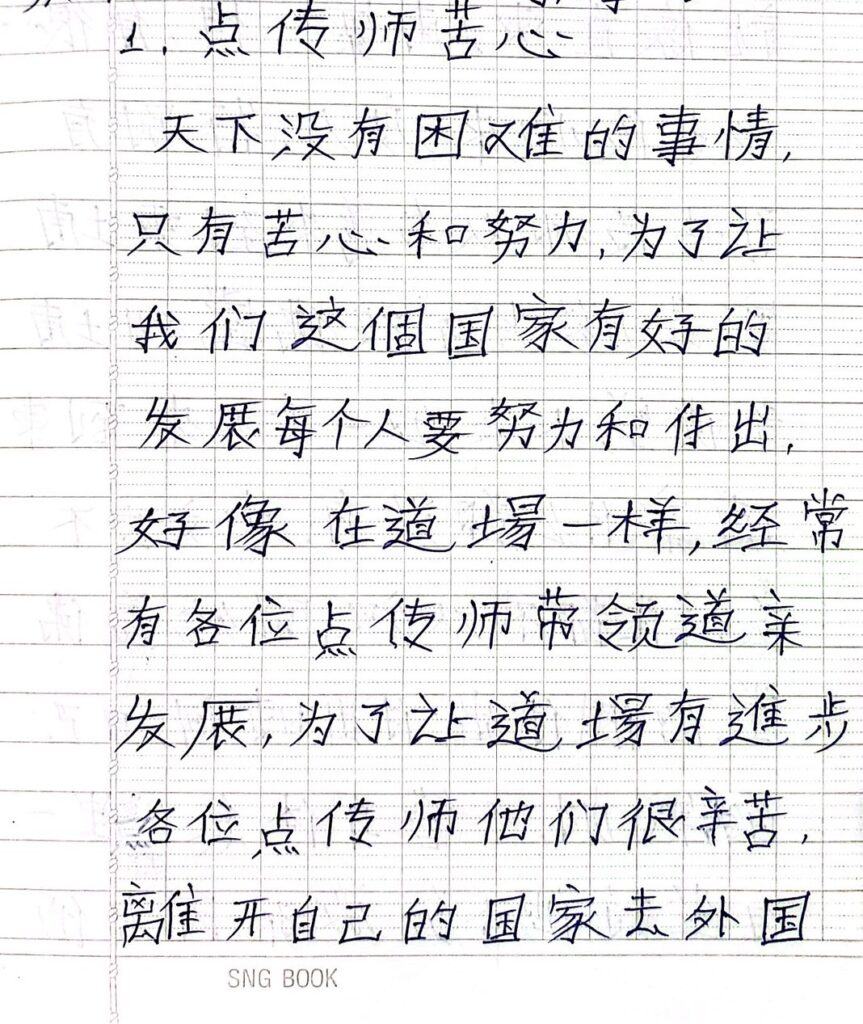 1. 点传师苦心
天下没有困难的事情,
只有苦心和努力,为了让
我们这個国家有好的
发展每个人要努力和付出,
好像在道場一样,经常
有各位点传师带领道亲
发展,为了让道場有進步
各位点传师他们很辛苦,
離开自己的国家去外国
SNG BOOK